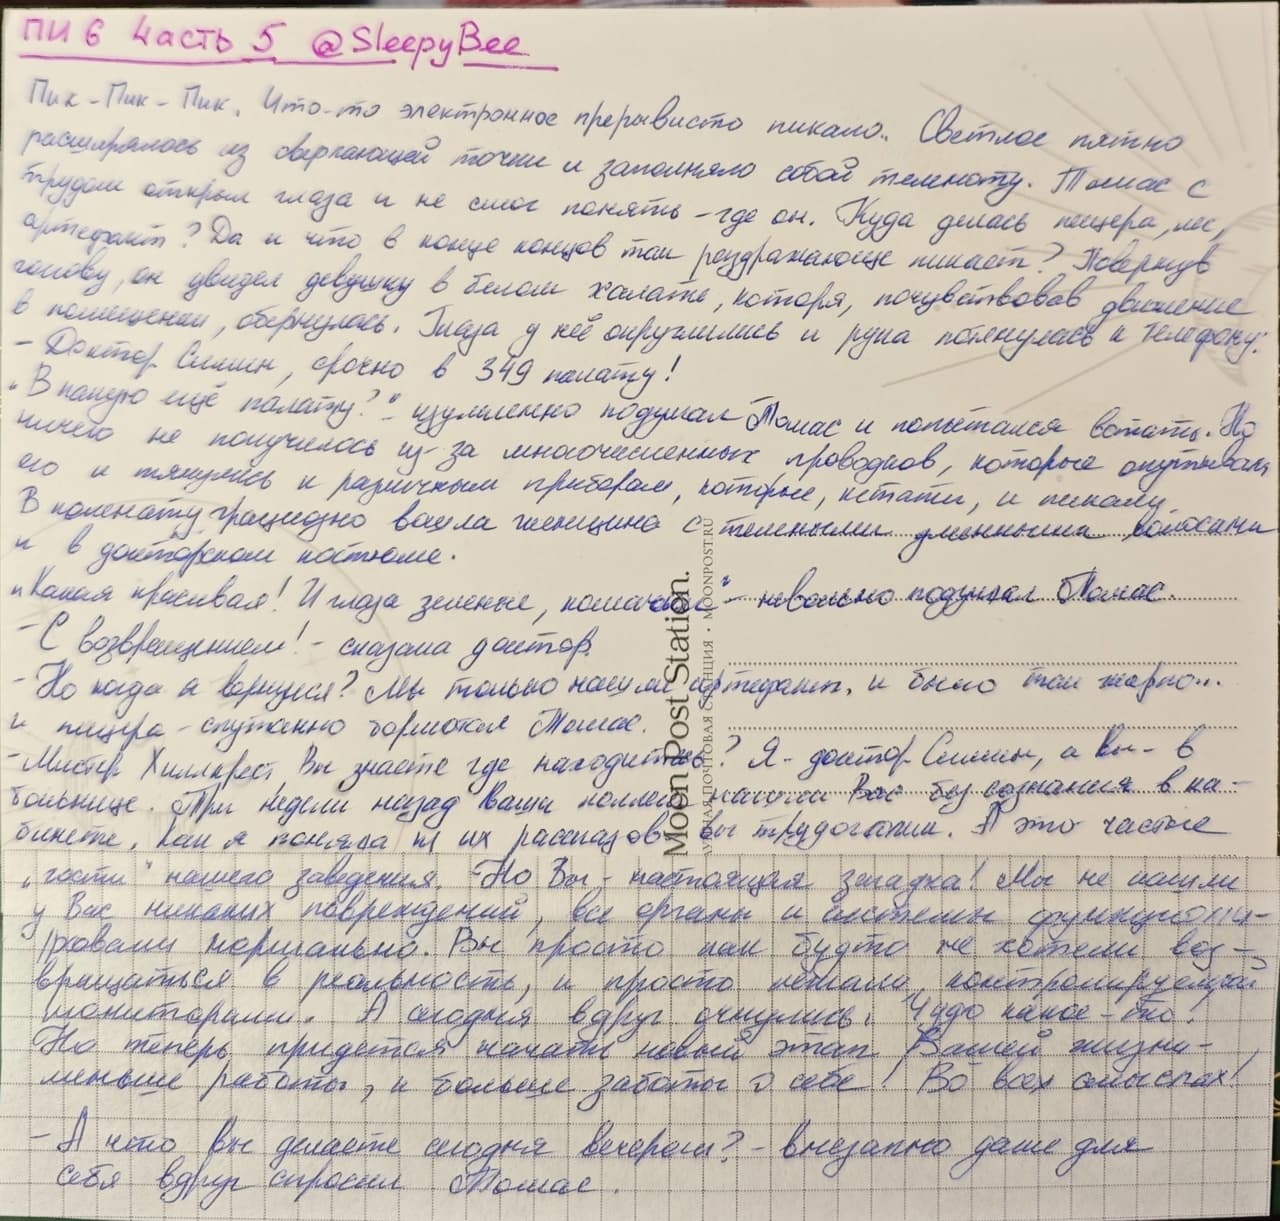 ПИ 6 Часть 5 @SleepyBee
Пик-Пик-Пик. Что-то электронное прерывисто пикало.. Светлое пятно
расширялось из сверкающей точки и заполняло собой темноту. Томас с
трудом открыл глаза и не смог понять - где он. Куда делась пещера, лес,
артефакт? Да и что в конце концов так раздражающе пикает? Повернув
голову, он увидел девушку в белом халате, которя, почувствовав движение
в помещении, обернулась. Глаза у неё округлились и рука потянулась к телефону:
- Доктор Симин, срочно в 349 палату!
"В какую ещё палату?" - изумленно подумал Томас и попытался встать. Но
ничего не получилось из-за многочисленных проводков, которые опутывали
его и тянулись к различным приборам, которые, кстати, и пикали.
В комнату грациозно вошла женщина с темными длинными волосами
и в докторском костюме.
"Какая красивая! И глаза зеленые, кошачьи" - невольно подумал Томас.
- С возвращением! - сказала доктор.
- Но когда я вернулся? Мы только нашли артефакт, и было так жарко...
и пещера - спутанно бормотал Томас.
- Мистер Хиллкрест, Вы знаете где находитесь? Я - доктор Симин, а Вы - в
больнице. Три недели назад Ваши коллеги нашли Вас без сознания в ка-
бинете. Как я поняла из их рассказов Вы трудоголик. А это частые
"гости" нашего заведения. Но Вы - настоящая загадка! Мы не нашли
у Вас никаких повреждений, все органы и системы функциони-
ровали нормально. Вы просто как будто не хотели воз-
вращаться в реальность, и просто лежали, контролируемый
мониторами. А сегодня вдруг очнулись. Чудо какое-то!
Но теперь придется начать новый этап Вашей жизни -
меньше работы, и больше заботы о себе! Во всех смыслах!
- А что Вы делаете сегодня вечером? - внезапно даже для
себя вдруг спросил Томас.
Moon Post Station.
ЛУННАЯ ПОЧТОВАЯ СТАНЦИЯ • MOONPOST.RU